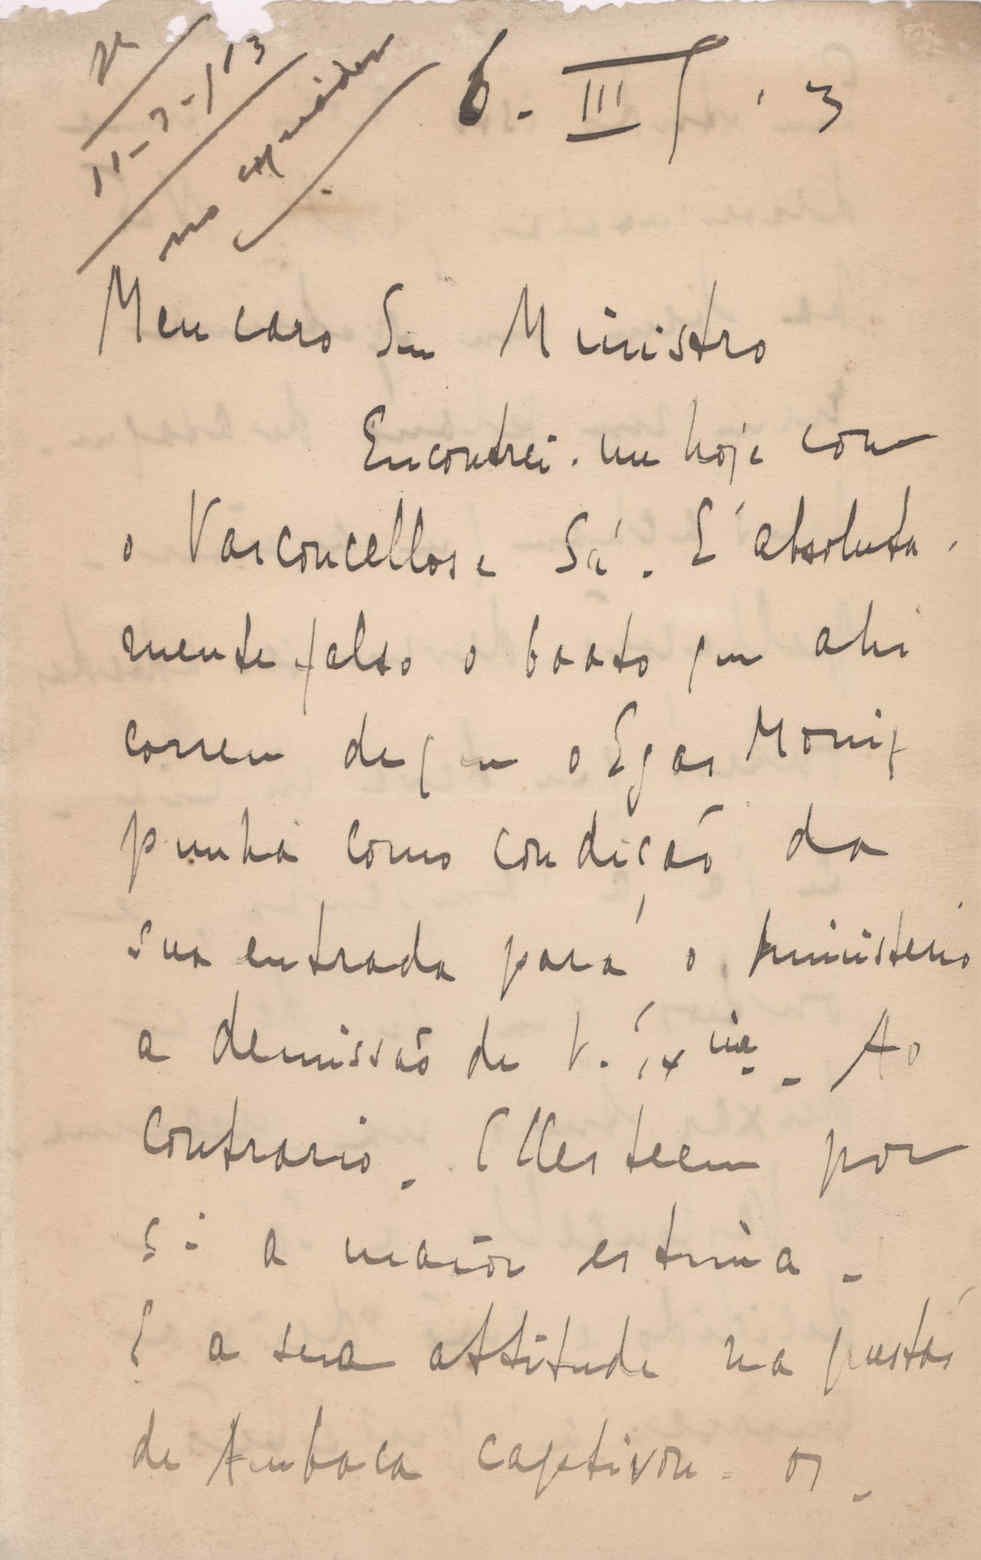 11-3-913
6-III-913
Meu caro Snr Ministro
Encontrei-me hoje com
o Vasconcellos e Sá. E' absoluta-
mente falso o boato que ahi
correu de que o Egas Moniz
punha como condição da
sua entrada para o ministerio
a demissão de V. Exᶜⁱᵃ. Ao
contrario. Elles teem por
si a maior estima.
E a sua attitude na questão
de Ambaca captivou-os.